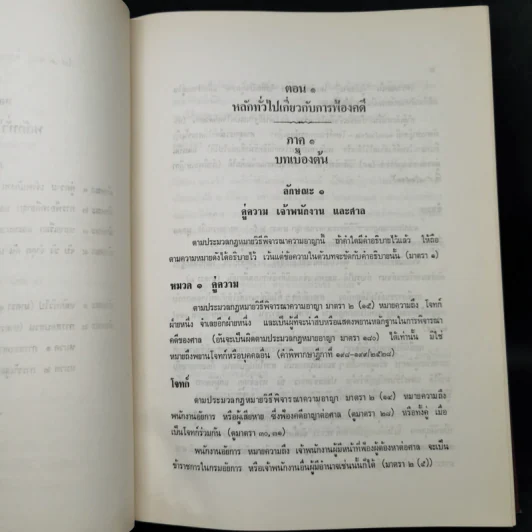 ตอน ๑
หลักทั่วไปเกี่ยวกับการฟ้องคดี
ภาค ๑
บทเบื้องต้น
ลักษณะ ๑
คู่ความ เจ้าพนักงาน และศาล
ตามประมวลกฎหมายวิธีพิจารณาความอาญานี้ ถ้าคำใดมีคำอธิบายไว้แล้ว ให้ถือ
ตามความหมายดังได้อธิบายไว้ เว้นแต่ข้อความในตัวบทจะขัดกับคำอธิบายนั้น (มาตรา ๑)
หมวด ๑ คู่ความ
ตามประมวลกฎหมายวิธีพิจารณาความอาญา มาตรา ๒ (๑๕) หมายความถึง โจทก์
ฝ่ายหนึ่ง จำเลยอีกฝ่ายหนึ่ง และเป็นผู้ที่จะนำสืบหรือแสดงพยานหลักฐานในการพิจารณา
คดีของศาล (อันจะเป็นผิดตามประมวลกฎหมายอาญา มาตรา ๑๘๐) ได้เท่านั้น มิใช่
หมายถึงพยานโจทก์หรือบุคคลอื่น (คำพิพากษาฎีกาที่
โจทก์
ตามประมวลกฎหมายวิธีพิจารณาความอาญา มาตรา ๒ (๑๔) หมายความถึง
พนักงานอัยการ หรือผู้เสียหาย ซึ่งฟ้องคดีอาญาต่อศาล (ดูมาตรา ๒๘) หรือทั้งคู่ เมื่อ
เป็นโจทก์ร่วมกัน (ดูมาตรา ๓๐, ๓๑)
พนักงานอัยการ หมายความถึง เจ้าพนักงานผู้มีหน้าที่ฟ้องผู้ต้องหาต่อศาล จะเป็น
ข้าราชการในกรมอัยการ หรือเจ้าพนักงานอื่นผู้มีอำนาจเช่นนั้นก็ได้ (มาตรา ๒ (๕))